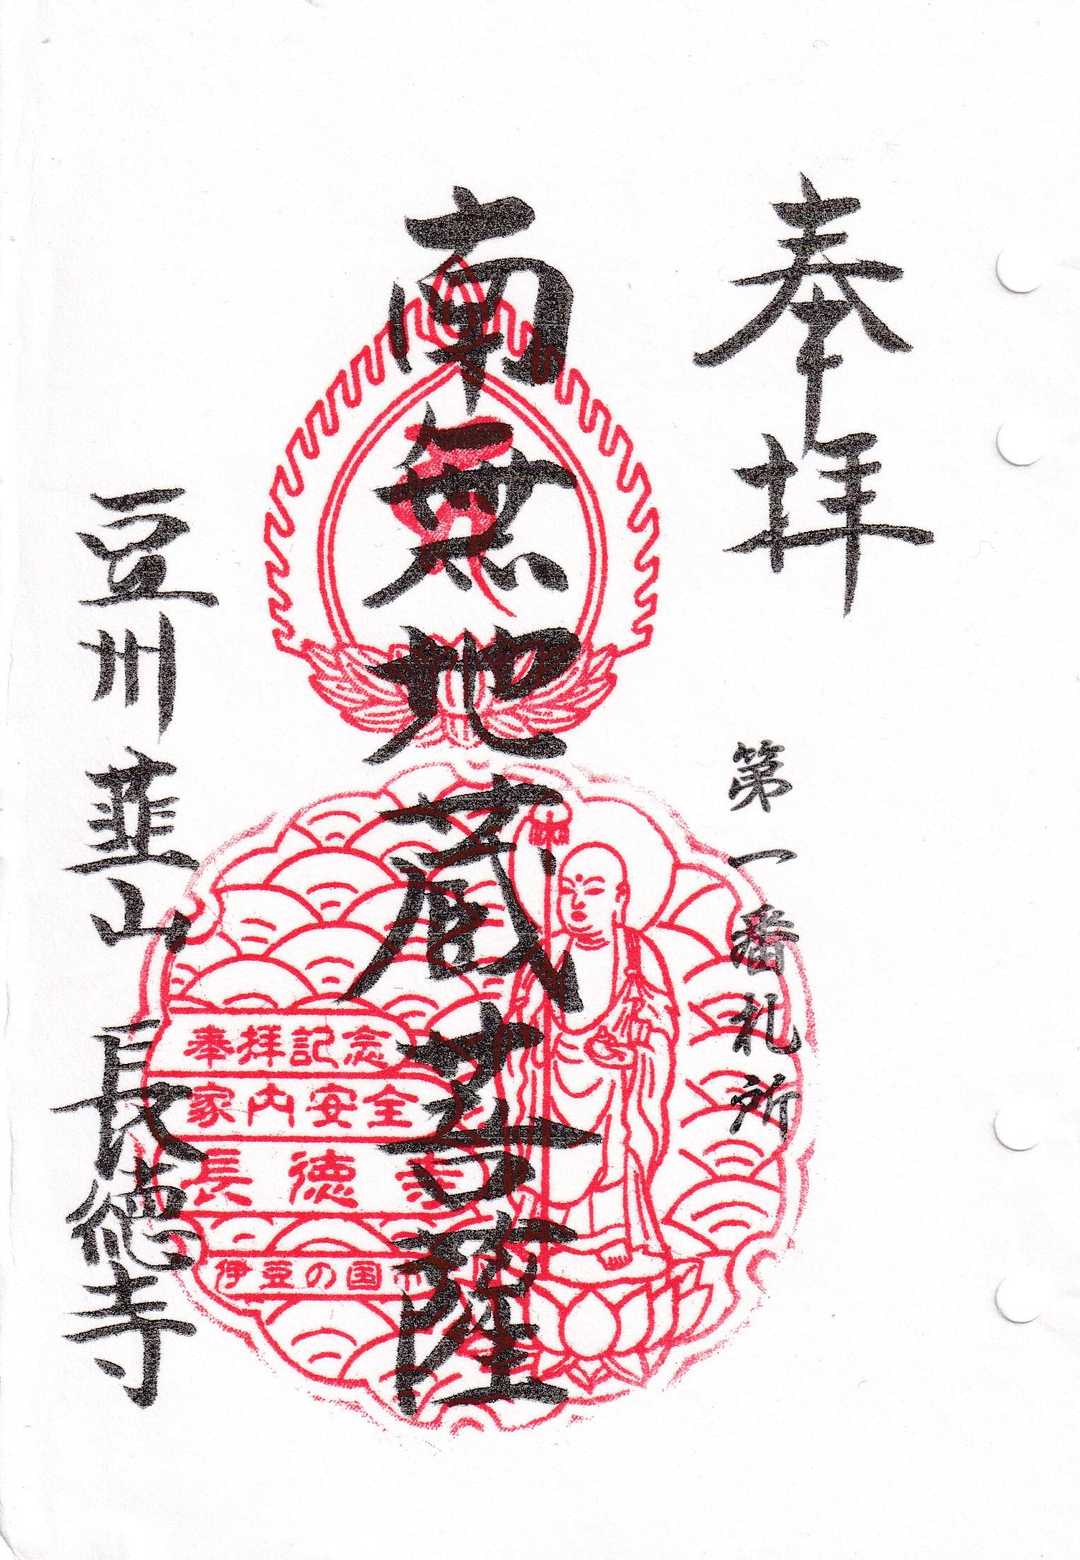 奉拝
第一番札所
南無地蔵菩薩
豆州韮山 長徳寺
奉拝記念
家内安全
長徳寺
伊豆の国市